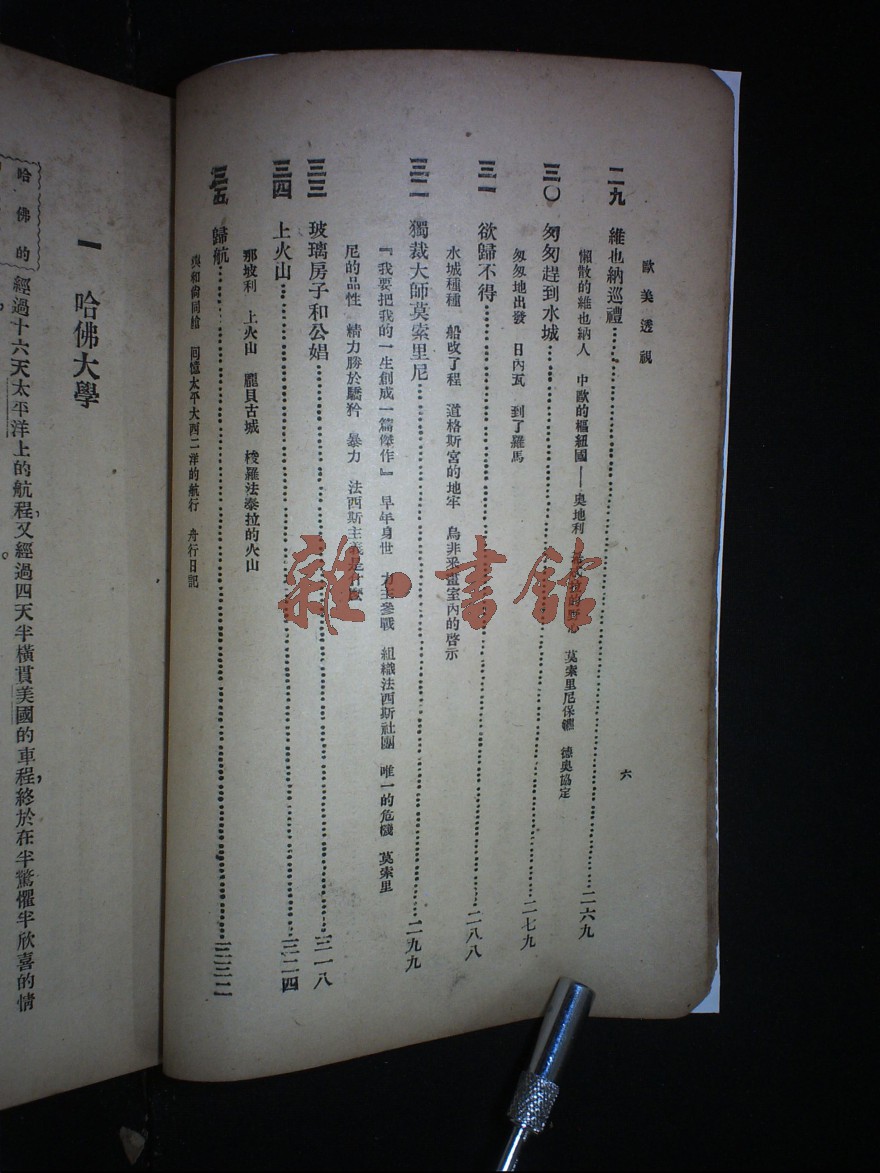 歐美透視
六
二九 維也納巡禮……二六九
懶散的維也納人 中歐的樞紐國——奧地利 的野心 莫索里尼保鑣 德奧協定
三〇 匆匆趕到水城……二七九
匆匆地出發 日內瓦 到了羅馬
三一 欲歸不得……二八八
水城種種 船改了程 道格斯宮的地牢 烏非柔畫室內的啓示
三二 獨裁大師莫索里尼……二九九
『我要把我的一生創成一篇傑作』 早年身世 力主參戰 組織法西斯社團 唯一的危機 莫索里
尼的品性 精力勝於驕矜 暴力 法西斯主義是什麼
三三 玻璃房子和公娼……三一八
三四 上火山……三二四
那坡利 上火山 龐貝古城 梭羅法泰拉的火山
三五 歸航……三三二
與和尚同艙 回憶太平大西二洋的航行 舟行日記
雜·書館
一 哈佛大學
哈佛的
經過十六天太平洋上的航程,又經過四天半橫貫美國的車程,終於在半驚懼半欣喜的情